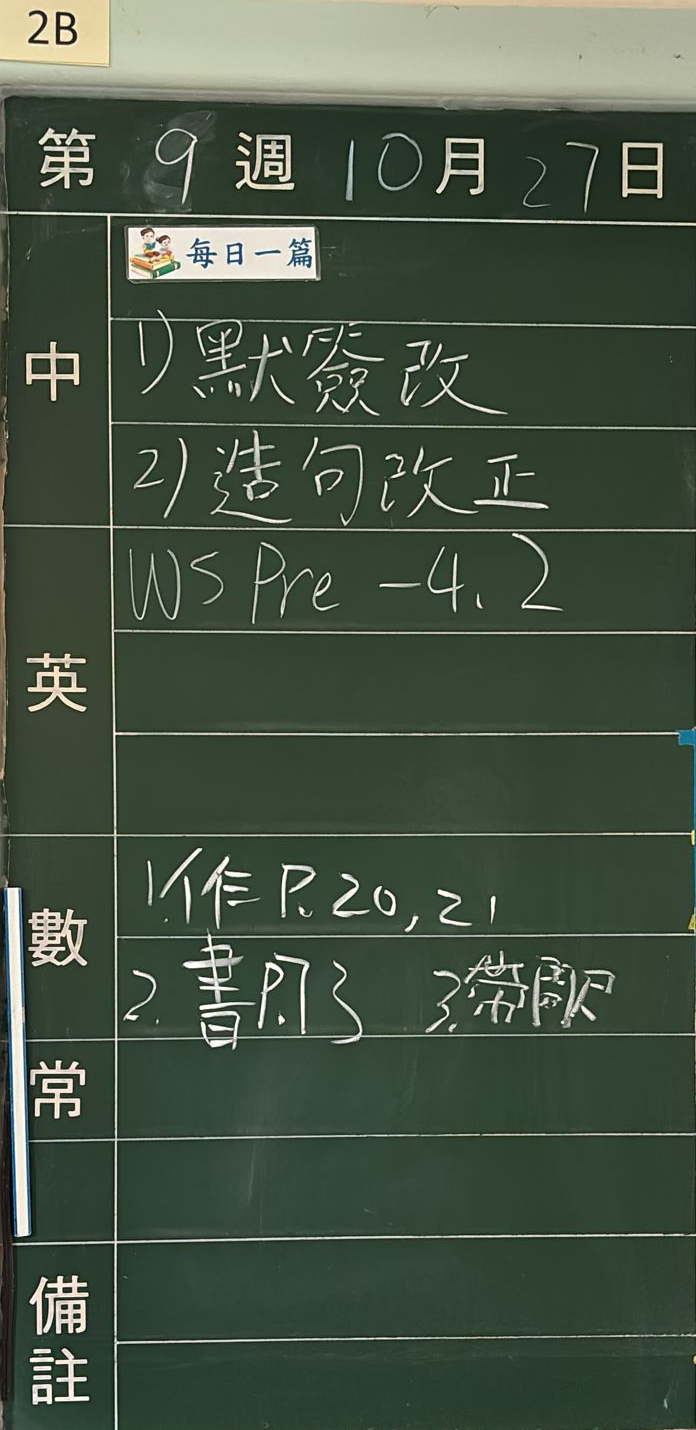 2B
第 9 週 10 月 27 日
每日一篇
中
1) 默簽改
2) 造句改正
英
WS Pre -4.2
數
1.作 P.20,21
2. 書P.73 3.帶間尺
常
備註